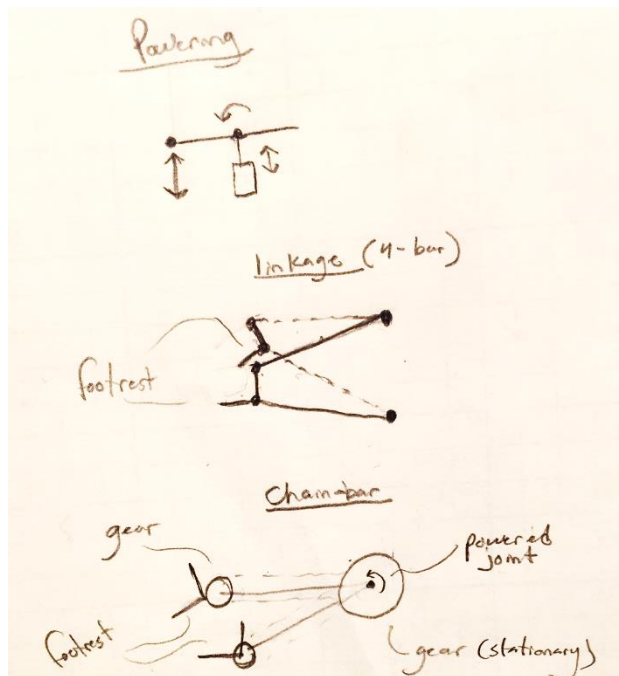 Powering
linkage (4-bar)
footrest
Chain-bar
gear
powered
joint
footrest
gear (stationary)